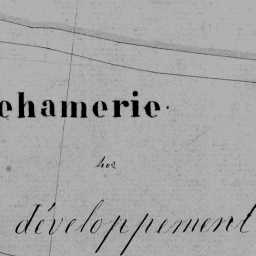 ehamerie.
développement